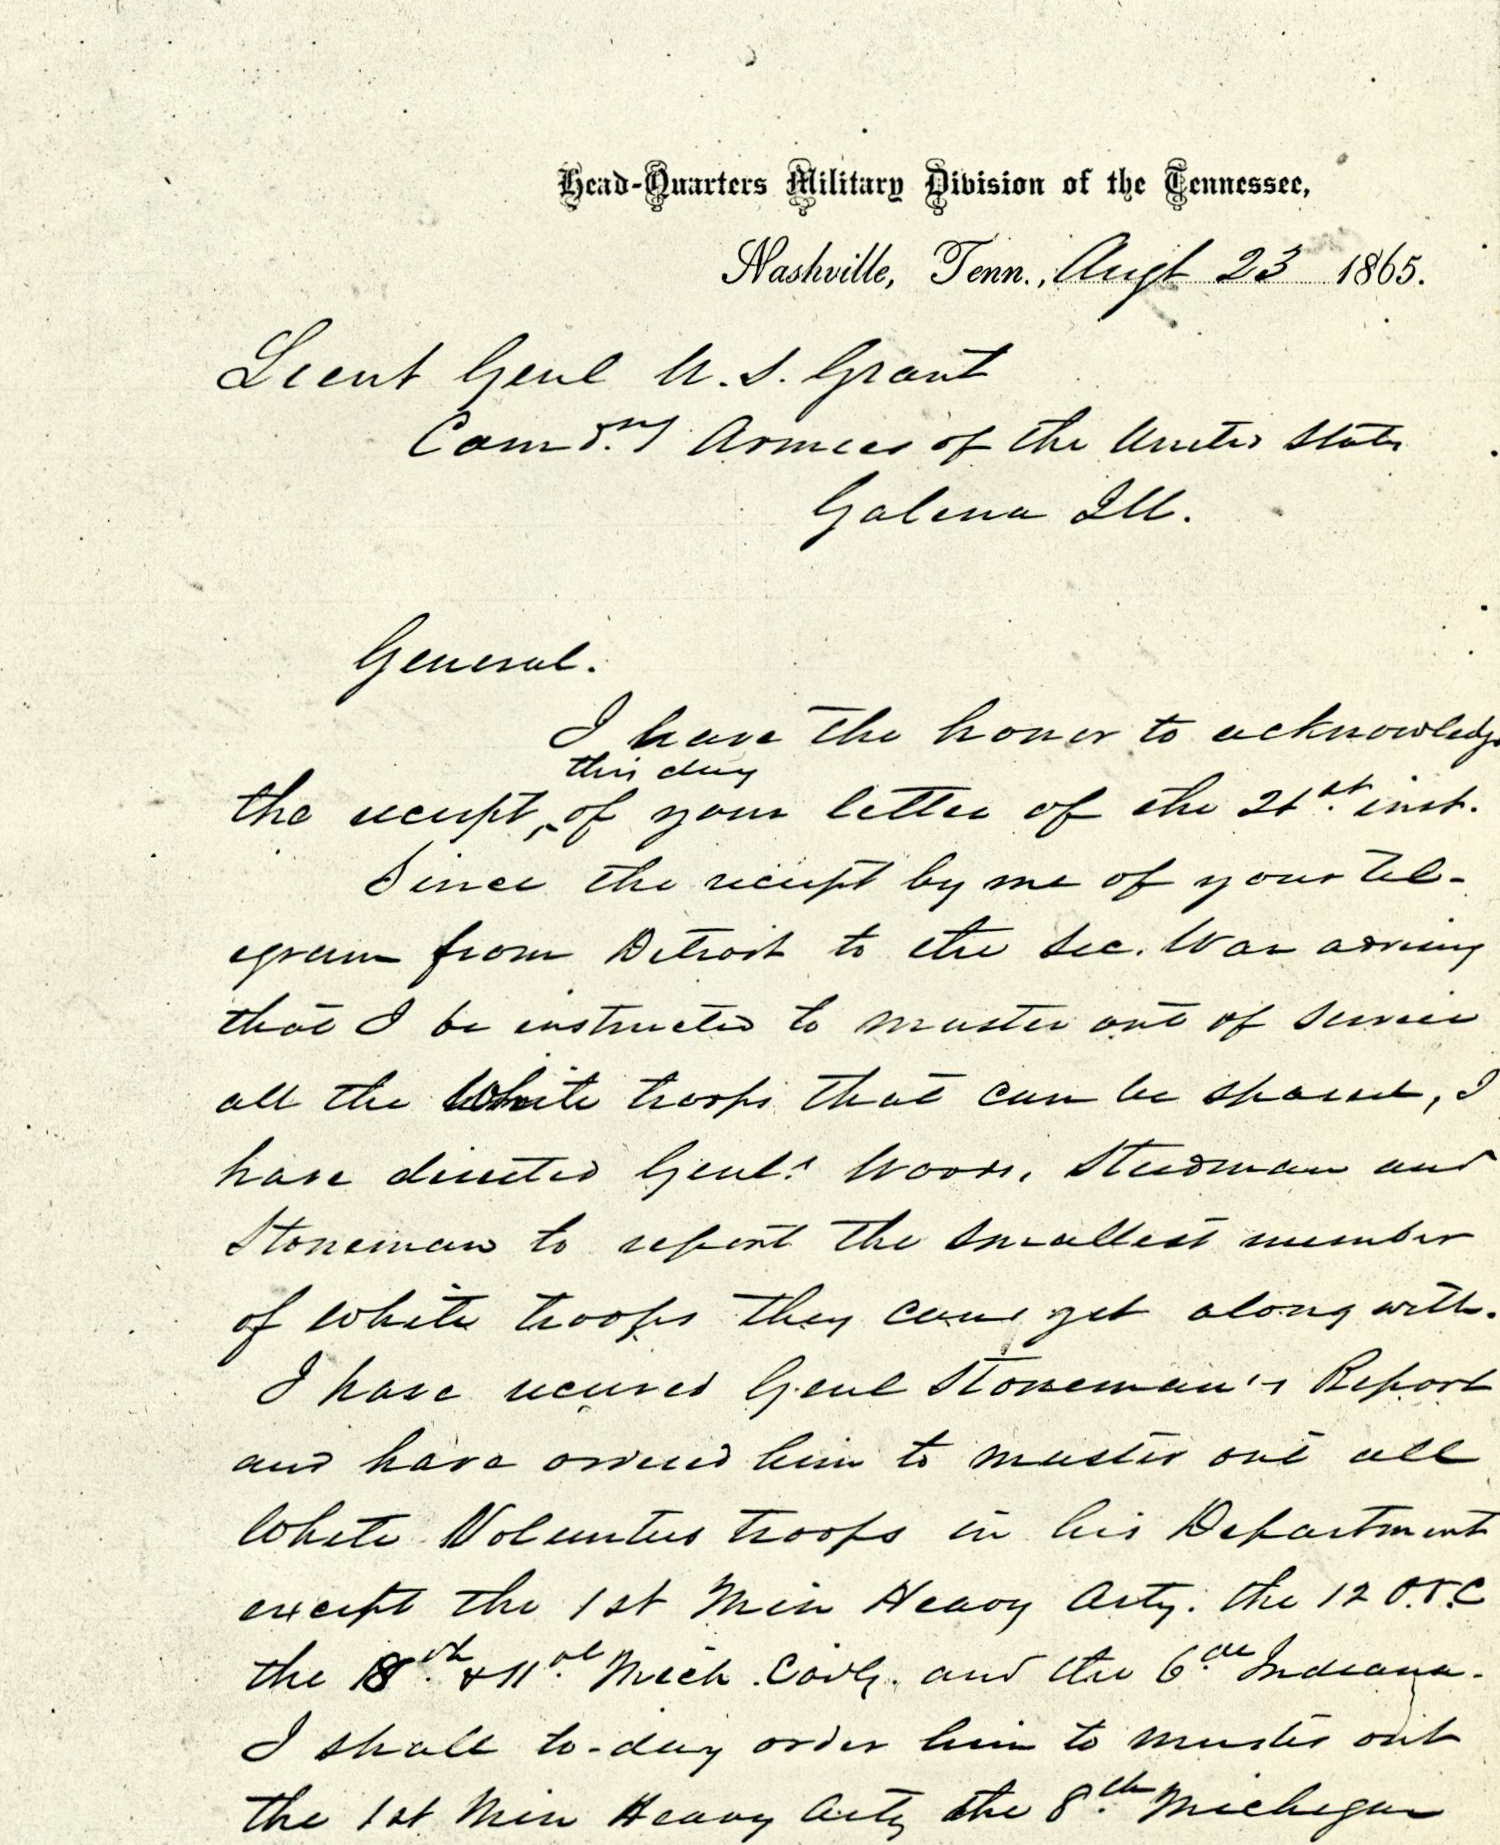 Head-Quarters Military Division of the Tennessee,
Nashville, Tenn., Augt 23 1865.
Lieut Genl U. S. Grant
Comdng Armies of the United States
Galena Ill.
General.
I have the honor to acknowledge
this day
the receipt, of your letter of the 21st inst.
Since the receipt by me of your tel-
egram from Detroit to the Sec. War asking
that I be instructed to muster out of service
all the White troops that can be spared, I
have directed Genls Woods, Steedman and
Stoneman to report the smallest number
of White troops they can get along with.
I have received Genl Stoneman's Report
and have ordered him to muster out all
White Volunteer troops in his Department
except the 1st Min Heavy Arty. the 12 O.V.C
the 8th & 11th Mich Cavly. and the 6th Indiana.
I shall to-day order him to muster out
the 1st Min Heavy Arty the 8th Michigan